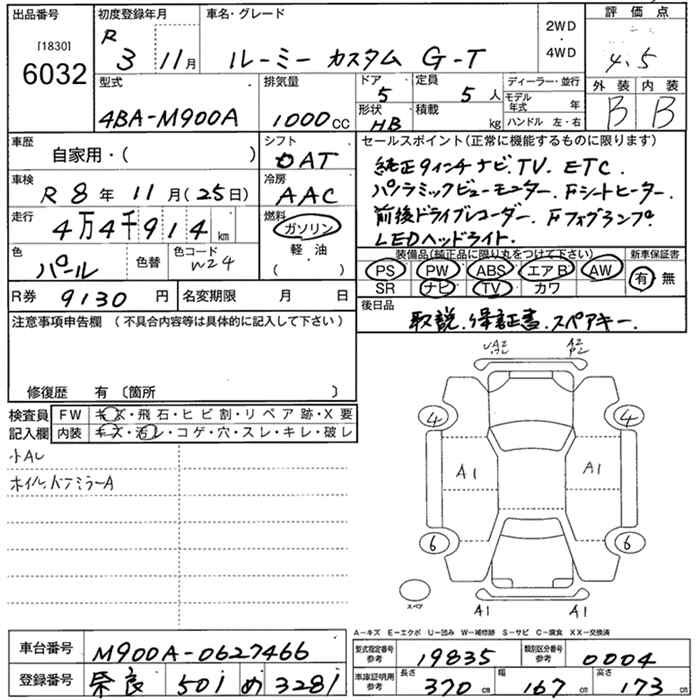 出品番号 初度登録年月 車名・グレード 2WD・4WD 評価点
[1830] 6032 R 3 11月 ルーミー カスタム G-T 4.5
型式 4BA-M900A 排気量 1000cc ドア 5 定員 5人 ディーラー・並行 外装 B 内装 B
形状 HB 積載 kg モデル年式 年 ハンドル 左・右
車歴 自家用・( ) シフト DAT セールスポイント(正常に機能するものに限ります)
車検 R 8年 11月(25日) 冷房 AAC 純正9インチナビ.TV. ETC.
パノラミックビューモニター. Fシートヒーター.
走行 4万4千914km 燃料 ガソリン・軽油・( ) 前後ドライブレコーダー. Fフォグランプ
LEDヘッドライト.
色 パール 色替 色コード W24 装備品(純正品に限り丸をつけて下さい) 新車保証書
PS PW ABS エアB AW 有・無
SR ナビ TV カワ
R券 9130円 名変期限 月 日 後日品
取説.保証書.スペアキー.
注意事項申告欄 (不具合内容等は具体的に記入して下さい)
修復歴 有 〔箇所 〕
検査員記入欄 FW キズ・飛石・ヒビ割・リペア跡・X要
内装 キズ・汚レ・コゲ・穴・スレ・キレ・破レ
小AL
ホイル.ドアミラーA
4 4
A1 A1
6 6
スペア A1 A1
A-キズ E-エクボ U-凹み W-補修跡 S-サビ C-腐食 XX-交換済
車台番号 M900A-0627466 型式指定番号 参考 19835 類別区分番号 参考 0004
登録番号 奈良 501 め 3281 車庫証明用 参考 長さ 370cm 幅 167cm 高さ 173cm